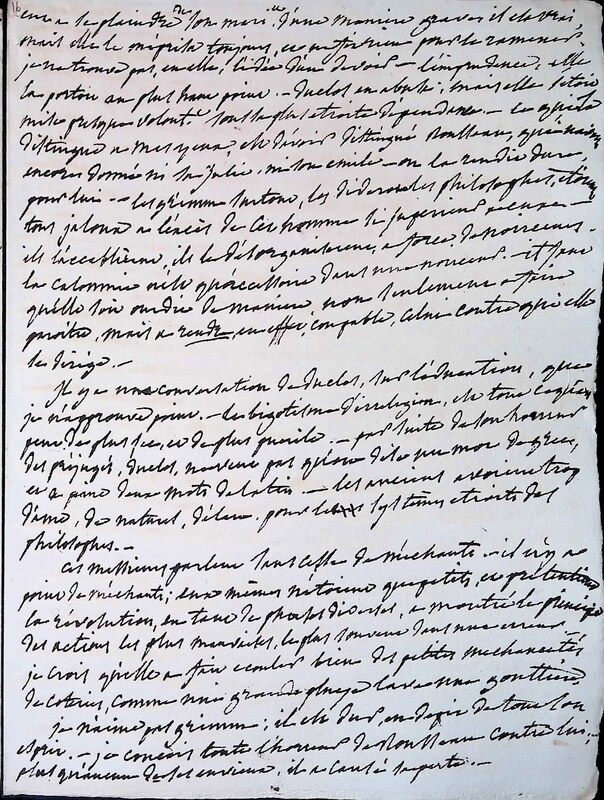 16
a se plaindre de son mari d'une manière grave, il est vrai,
mais elle le méprise toujours, et ne fait rien pour le ramener.
je ne trouve pas, en elle, l'idée d'un devoir – l'imprudence, elle
la portoit au plus haut point. – Duclos en abuse; mais elle s'étoit
mise presque volont.re sous la plus étroite dépendance. – ce qui la
distingue à mes yeux, est d'avoir distingué Rousseau, qui n'avoit
encore donné ni sa julie, ni son emile – on la rendit dure
pour lui – les grimm surtout, les diderot, les philosophes, étoient
tous jaloux à l'excès de cet homme si supérieur à eux –
ils l'accablèrent, ils le désorganisèrent, à force de noirceurs. –
la calomnie n'est qu'accessoire dans une noirceur. – il faut
qu'elle soit ourdie de manière, non seulement à faire
paroître, mais à rendre, en effet, coupable, celui contre qui elle
se dirige. –
Il y a une conversation de duclos, sur l'éducation, que
je n'approuve point. – le bigotisme d'irreligion, est tout ce qu'on
peut de plus sec, et de plus puérile. – par suite de son horreur
des préjugés, duclos, ne veut pas qu'on dise un mot de grec,
et à peine deux mots de latin – les anciens avoient trop
d'ame, de naturel, d'élan, pour les systèmes étroits des
philosophes. –
Ces messieurs parlent sans cesse de méchants – il n'y a
point de méchants; eux mêmes n'étoient que petits, et prétentieux
la révolution, en tant de phases diverses, a montré le principe
des actions les plus mauvaises, le plus souvent dans une erreur –
je crois qu'elle a fait écouler bien des petites méchancetés
de coteries, comme une grande pluye lave une gouttière.
je n'aime pas grimm; il est dur, en dépit de tout son
esprit. – je conçois toute l'horreur de Rousseau contre lui;
plus qu'aucun de ses envieux, il a causé sa perte. –